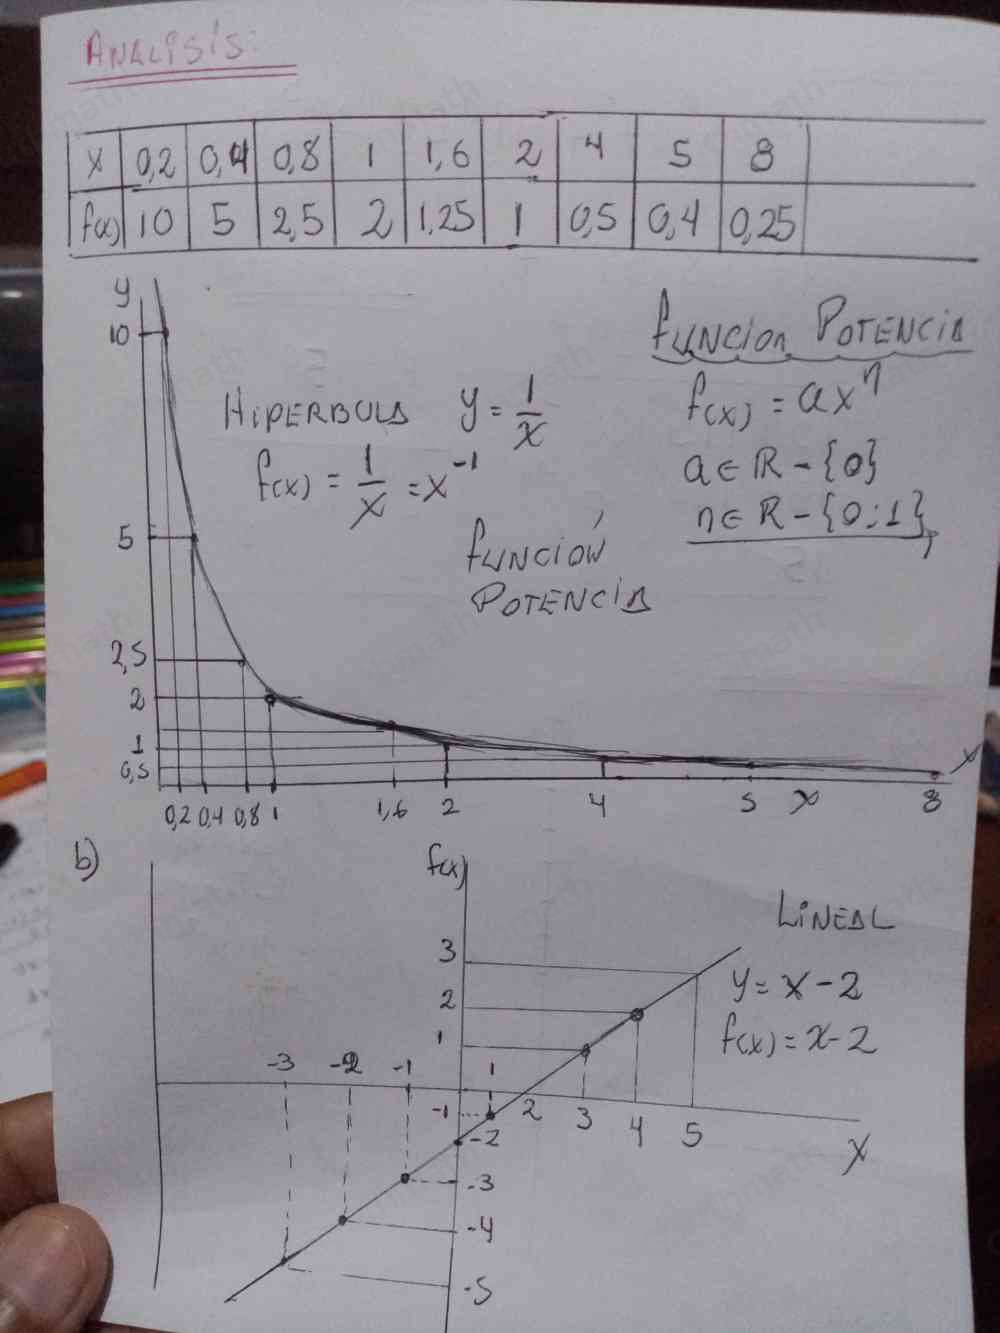 ANALISIS:
x 0,2 0,4 0,8 1 1,6 2 4 5 8
f(x) 10 5 2,5 2 1,25 1 0,5 0,4 0,25
y
10
5
2,5
2
1
0,5
0,2 0,4 0,8 1 1,6 2 4 5 x 8
x
HIPERBOLA y = 1/x
f(x) = 1/x = x^-1
FUNCIÓN
POTENCIA
FUNCION POTENCIA
f(x) = ax^n
a ∈ R - {0}
n ∈ R - {0;1},
b)
f(x)
LINEAL
y = x - 2
f(x) = x - 2
3
2
1
-3 -2 -1 1
2 3 4 5
x
-1
-2
-3
-4
-5